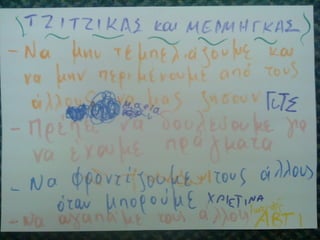 ΤΖΙΤΖΙΚΑΣ και ΜΕΡΜΗΓΚΑΣ
- Να μην τεμπελιάζουμε και
να μην περιμένουμε από τους
άλλους να μας ζήσουν
- Πρέπει να δουλεύουμε για
να έχουμε πράγματα
- Να φροντίζουμε τους άλλους
όταν μπορούμε ΧΡΙΣΤΙΝΑ
- Να αγαπάμε τους άλλους